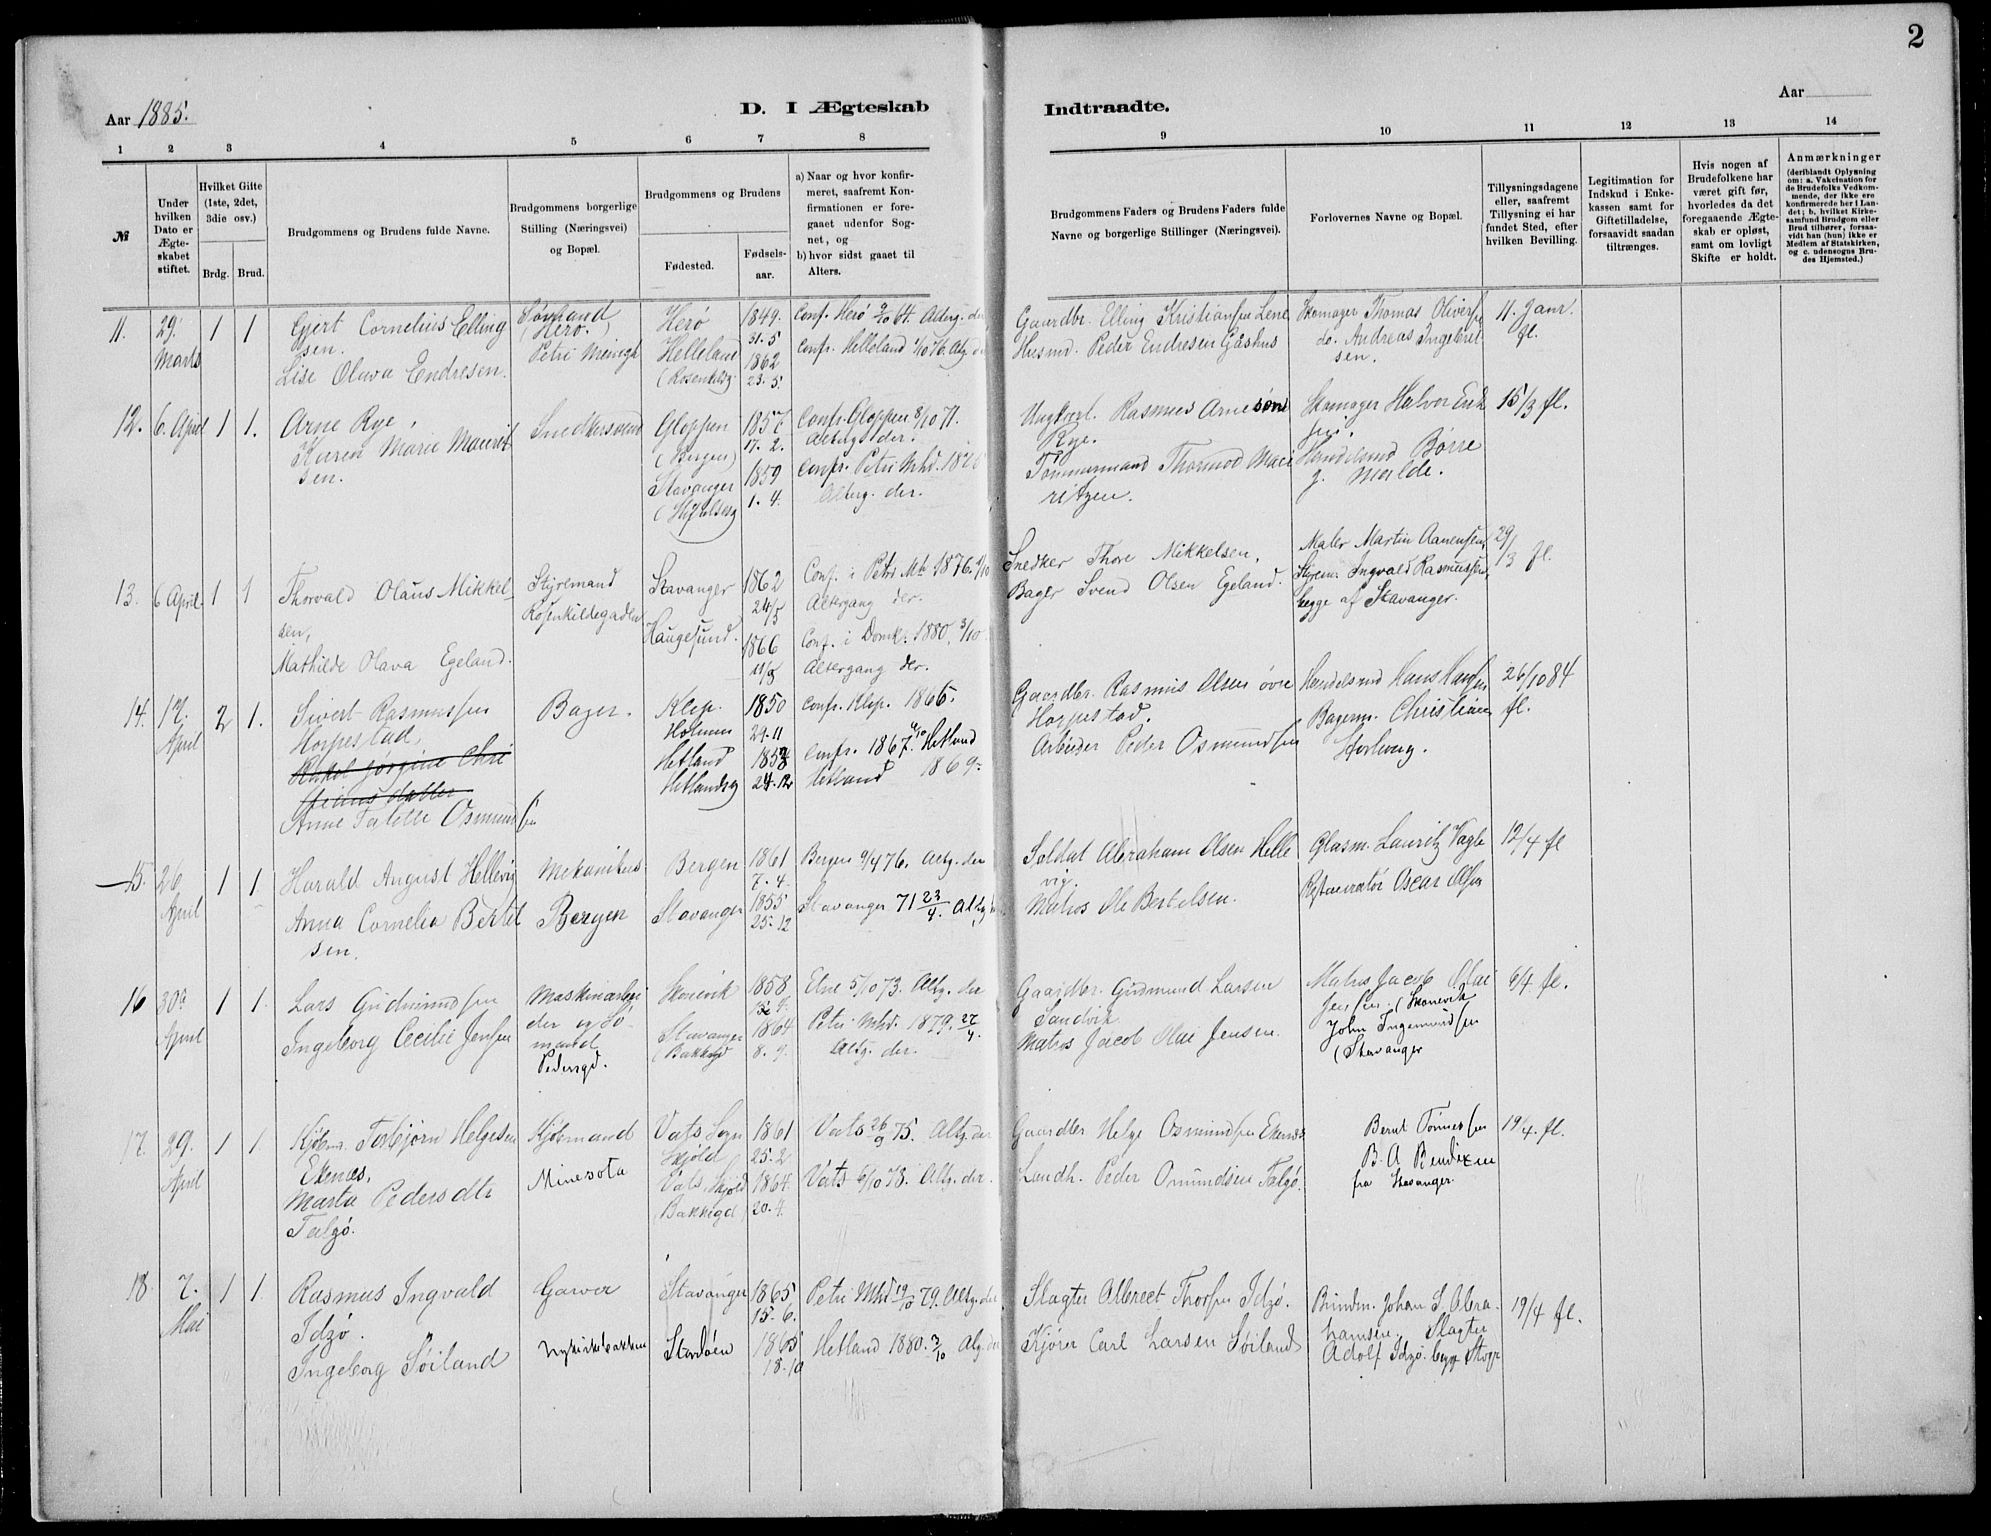 2
Aar 1885.
D. I Ægteskab
Indtraadte.
Aar
1 2 3 4 5 6 7 8 9 10 11 12 13 14
№
Under hvilken Dato er Ægteskabet stiftet.
Hvilket Gifte (1ste, 2det, 3die osv.)
Brdg. Brud.
Brudgommens og Brudens fulde Navne.
Brudgommens borgerlige Stilling (Næringsvei) og Bopæl.
Brudgommens og Brudens
Fødested.
Fødsels-aar.
a) Naar og hvor konfirmeret, saafremt Konfirmationen er foregaaet udenfor Sognet, og
b) hvor sidst gaaet til Alters.
Brudgommens Faders og Brudens Faders fulde Navne og borgerlige Stillinger (Næringsvei).
Forlovernes Navne og Bopæl.
Tillysningsdagene eller, saafremt Tillysning ei har fundet Sted, efter hvilken Bevilling.
Legitimation for Indskud i Enkekassen samt for Giftetilladelse, forsaavidt saadan tiltrænges.
Hvis nogen af Brudefolkene har været gift før, hvorledes da det foregaaende Ægteskab er opløst, samt om lovligt Skifte er holdt.
Anmærkninger
(deriblandt Oplysning om: a. Vakcination for de Brudefolks Vedkommende, der ikke ere konfirmerede her i Landet; b. hvilket Kirkesamfund Brudgom eller Brud tilhører, forsaavidt han (hun) ikke er Medlem af Statskirken, og c. udensogns Brudes Hjemsted.)
11. 29. Marts 1 1
Gjert Cornelius Ellingsen.
Lise Olava Endresen.
(Herø.)
Petri Menigh
Herø
Helleland
1849. 31.5
1862 23.5.
Conf. Herø 64. Alterg. der
Conf. Helleland 1/10 76. Altg. der
Gaardbr. Elling Kristiansen Lene
Husmd. Peder Endresen Gåshus
Skomager Thomas Olivers
do. Andreas Ingebretsen.
11. Janr. fl.
12. 6. April 1 1.
Arne Rye,
Karen Marie Mauritsen.
Snedkersvend
Gloppen
(Bergen)
Stavanger
17. 2.
1859
1. 4.
Confr. Gloppen 8/10 71.
Alterg. der.
Confr. Petri Mhd.
Alterg. der.
Rasmus Arnesøn Rye.
Tømmermand Thormod Mauritzen.
Skomager Halvor Erik
Børre
J. Malde.
15/3 fl.
13. 6 April 1 1
Thorvald Olaus Mikkelsen,
Mathilde Olava Egeland.
Styrmand
Rosenkildegaden
Stavanger
Haugesund.
1862
1866
Conf. i Petri Mh 1876. 1/10
Altergang der.
Conf. i Domk. 1880, 3/10
Altergang der.
Snedker Thore Mikkelsen,
Bager Svend Olsen Egeland.
Maler Martin Aanensen,
Styrm. Ingvald Rasmussen,
begge af Stavanger.
29/3 fl.
14. 17. April 2 1.
Sivert Rasmussen
Horpestad,
Rakel Jorgine Chri
stians datter
Anne Osmundsen
Bager.
Klep.
Hetland
1850
29.11
24.12
Confr. Klep. 1865.
Confr. 1867 Hetland
Hetland 1869.
Gaardbr. Rasmus Olsen øvre
Horpestad.
Arbeider Peder Osmundsen
Hans Hansen
Bagerm. Christian
26/10 84 fl.
15. 26 April 1 1.
Harald August Hellevig
Anna Cornelia Bertelsen.
Mekanikus
Bergen
Bergen
Stavanger
1861
7. 4.
1855
25. 12
Bergen 9/4 76. Altg. der
Stavanger 71 23/4. Altg.
Soldat Abraham Olsen Hellevig.
Matros Ole Bertelsen.
Glasm. Lauritz Vagle
Oscar Olsen
12/4 fl
16 30te April 1 1.
Lars Gudmundsen
Ingeborg Cecilie Jensen
Maskinarbeider og Sømand
Pedersgd.
Skonevik
Stavanger
(Bakkegd
1858
1864
8. 9.
Etne 5/10 73. Altg. der
Petri Mhd. 1879. 27/4.
Altg. der.
Gaardbr. Gudmund Larsen
Sandvik
Matros Jacob Olai Jensen.
Matros Jacob Olai
Jensen. (Skonevik
John Ingemundsen
(Stavanger
6/4 fl.
17. 29. April 1 1.
Kjøbm. Torbjørn Helgesen
Eknæs,
Marta Pedersdtr
Talgø.
Kjøbmand
Minesota
Vats Sogn
Skjold
Vats, Skjold
Bakkegd
1861
25. 2
1864.
20. 4.
Vats 26/9 75. Altg. der
Vats 6/10 78. Altg. der.
Gaardbr Helge Osmundsen Eknæs.
Landh. Peder Omundsen Talgø.
Bernt Tønnesen
B. A Bendixen
fra Stavanger.
19/4. fl.
18 7. Mai 1 1.
Rasmus Ingvald
Idzø.
Ingeborg Søiland
Garver
Nykirkebakken
Stavanger
Stordøen
1865
15. 6.
1865
18. 10
Petri Mhd 79. Altg. der
Hetland 1880. 3/10 Altg. der
Slagter Albrect Thorsen Idzø.
Kjører Carl Larsen Søiland
Johan S. Abrahamsen. Slagter
Adolf Idzø. begge Stvgr
19/4 fl.